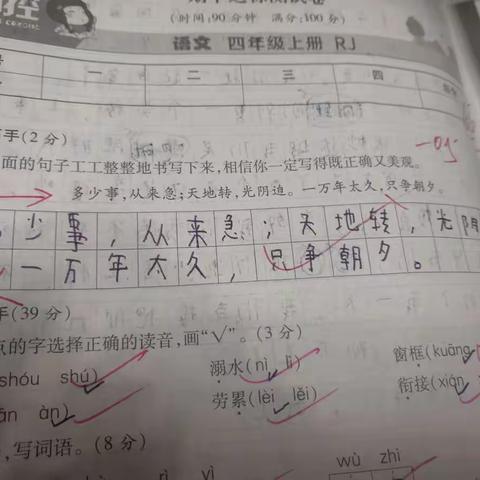 (时间:90分钟 满分:100分)
语文 四年级上册 RJ
一 二 三 四
手(2分)
面的句子工工整整地书写下来,相信你一定写得既正确又美观。
多少事,从来急;天地转,光阴迫。一万年太久,只争朝夕。
少事,从来急;天地转,光阴
一万年太久,只争朝夕。
手(39分)
点的字选择正确的读音,画“√”。(3分)
shóu shú) 溺水(nì lì) 窗框(kuāng
àn) 劳累(lèi lěi) 衔接(xián
,写词语。(8分)
rì yì wù zhì